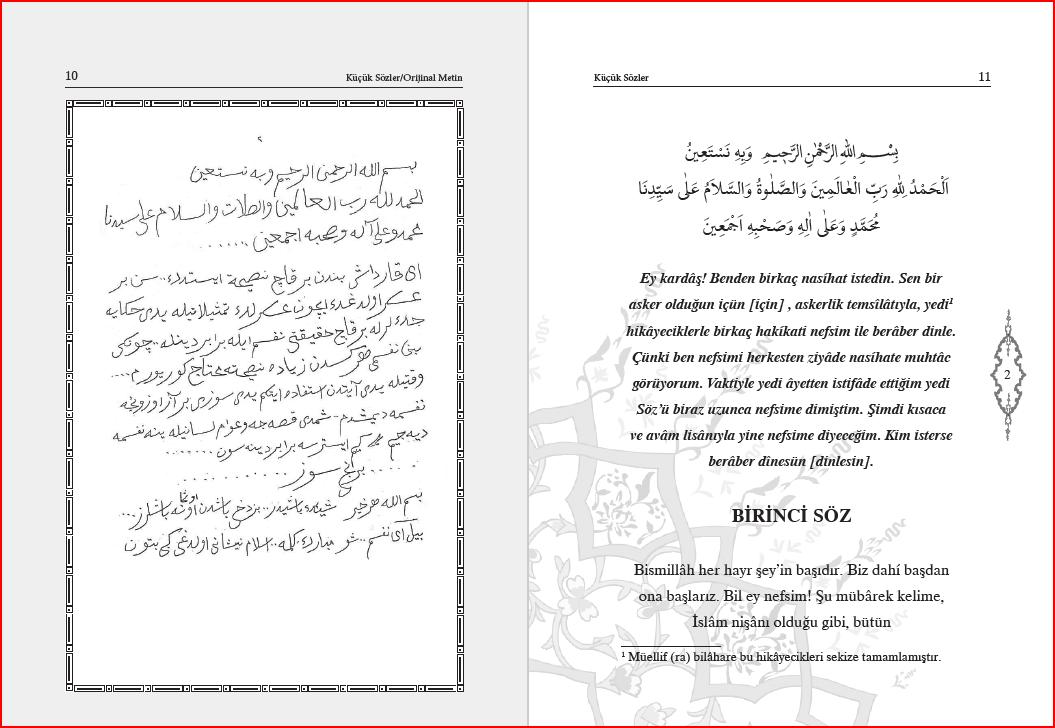 10
Küçük Sözler/Orijinal Metin
٢
بسم الله الرحمن الرحيم وبه نستعين
الحمد لله رب العالمين والصلات والسلام على سيدنا
محمد وعلى آله وصحبه اجمعين
ای قارداش بندن بر قاچ نصیحة ایستدڭ.. سن بر
عسكر اولدغڭ ایچون عسكرلك تمثیلاتیله یدی حكایه
جكلرله بر قاچ حقیقتی نفسم ایله برابر دینله.. چونكی
بن نفسمی هركسدن زیاده نصیحته محتاج كوریورم....
وقتیله یدی آیتدن استفاده ایتدیكم یدی سوزی بر آز اوزونجه
نفسمه دیمشدم.. شمدی قصه جه وعوام لسانیله ینه نفسمه
دیه جیم كیم ایسترسه برابر دینه سون
برنجی سوز
بسم الله هر خیر شیئڭ باشیدر.. بزدخی باشدن اوڭا باشلرز...
بیل آی نفسم.. شو مبارك كلمه.. اسلام نیشانی اولدغی كبی بتون
Küçük Sözler
11
بِسْمِ اللهِ الرَّحْمٰنِ الرَّحِيمِ وَبِهِ نَسْتَعِينُ
اَلْحَمْدُ لِلّٰهِ رَبِّ الْعَالَمِينَ وَالصَّلٰوةُ وَالسَّلاَمُ عَلٰى سَيِّدِنَا
مُحَمَّدٍ وَعَلٰى اٰلِهِ وَصَحْبِهِ اَجْمَعِينَ
Ey kardâş! Benden birkaç nasíhat istedin. Sen bir
asker olduğun içün [için] , askerlik temsîlâtıyla, yedi¹
hikâyeciklerle birkaç hakíkati nefsim ile berâber dinle.
Çünki ben nefsimi herkesten ziyâde nasíhate muhtâc
görüyorum. Vaktiyle yedi âyetten istifâde ettiğim yedi
Söz’ü biraz uzunca nefsime dimiştim. Şimdi kısaca
ve avâm lisânıyla yine nefsime diyeceğim. Kim isterse
berâber dinesün [dinlesin].
2
BİRİNCİ SÖZ
Bismillâh her hayr şey’in başıdır. Biz dahí başdan
ona başlarız. Bil ey nefsim! Şu mübârek kelime,
İslâm nişânı olduğu gibi, bütün
¹ Müellif (ra) bilâhare bu hikâyecikleri sekize tamamlamıştır.